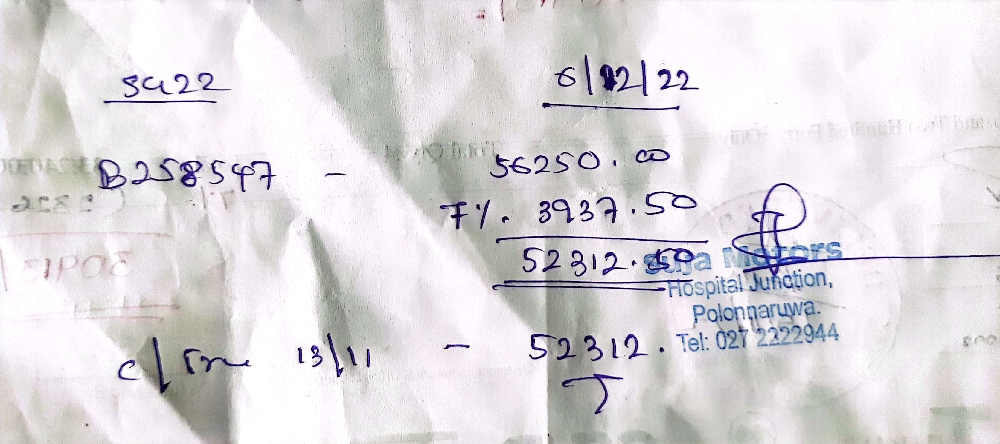 6/12/22
B258547 - 56250.00
7%. 3937.50
52312.50
Motors
Hospital Junction,
Polonnaruwa.
Tel: 027 2222944
13/11 - 52312.